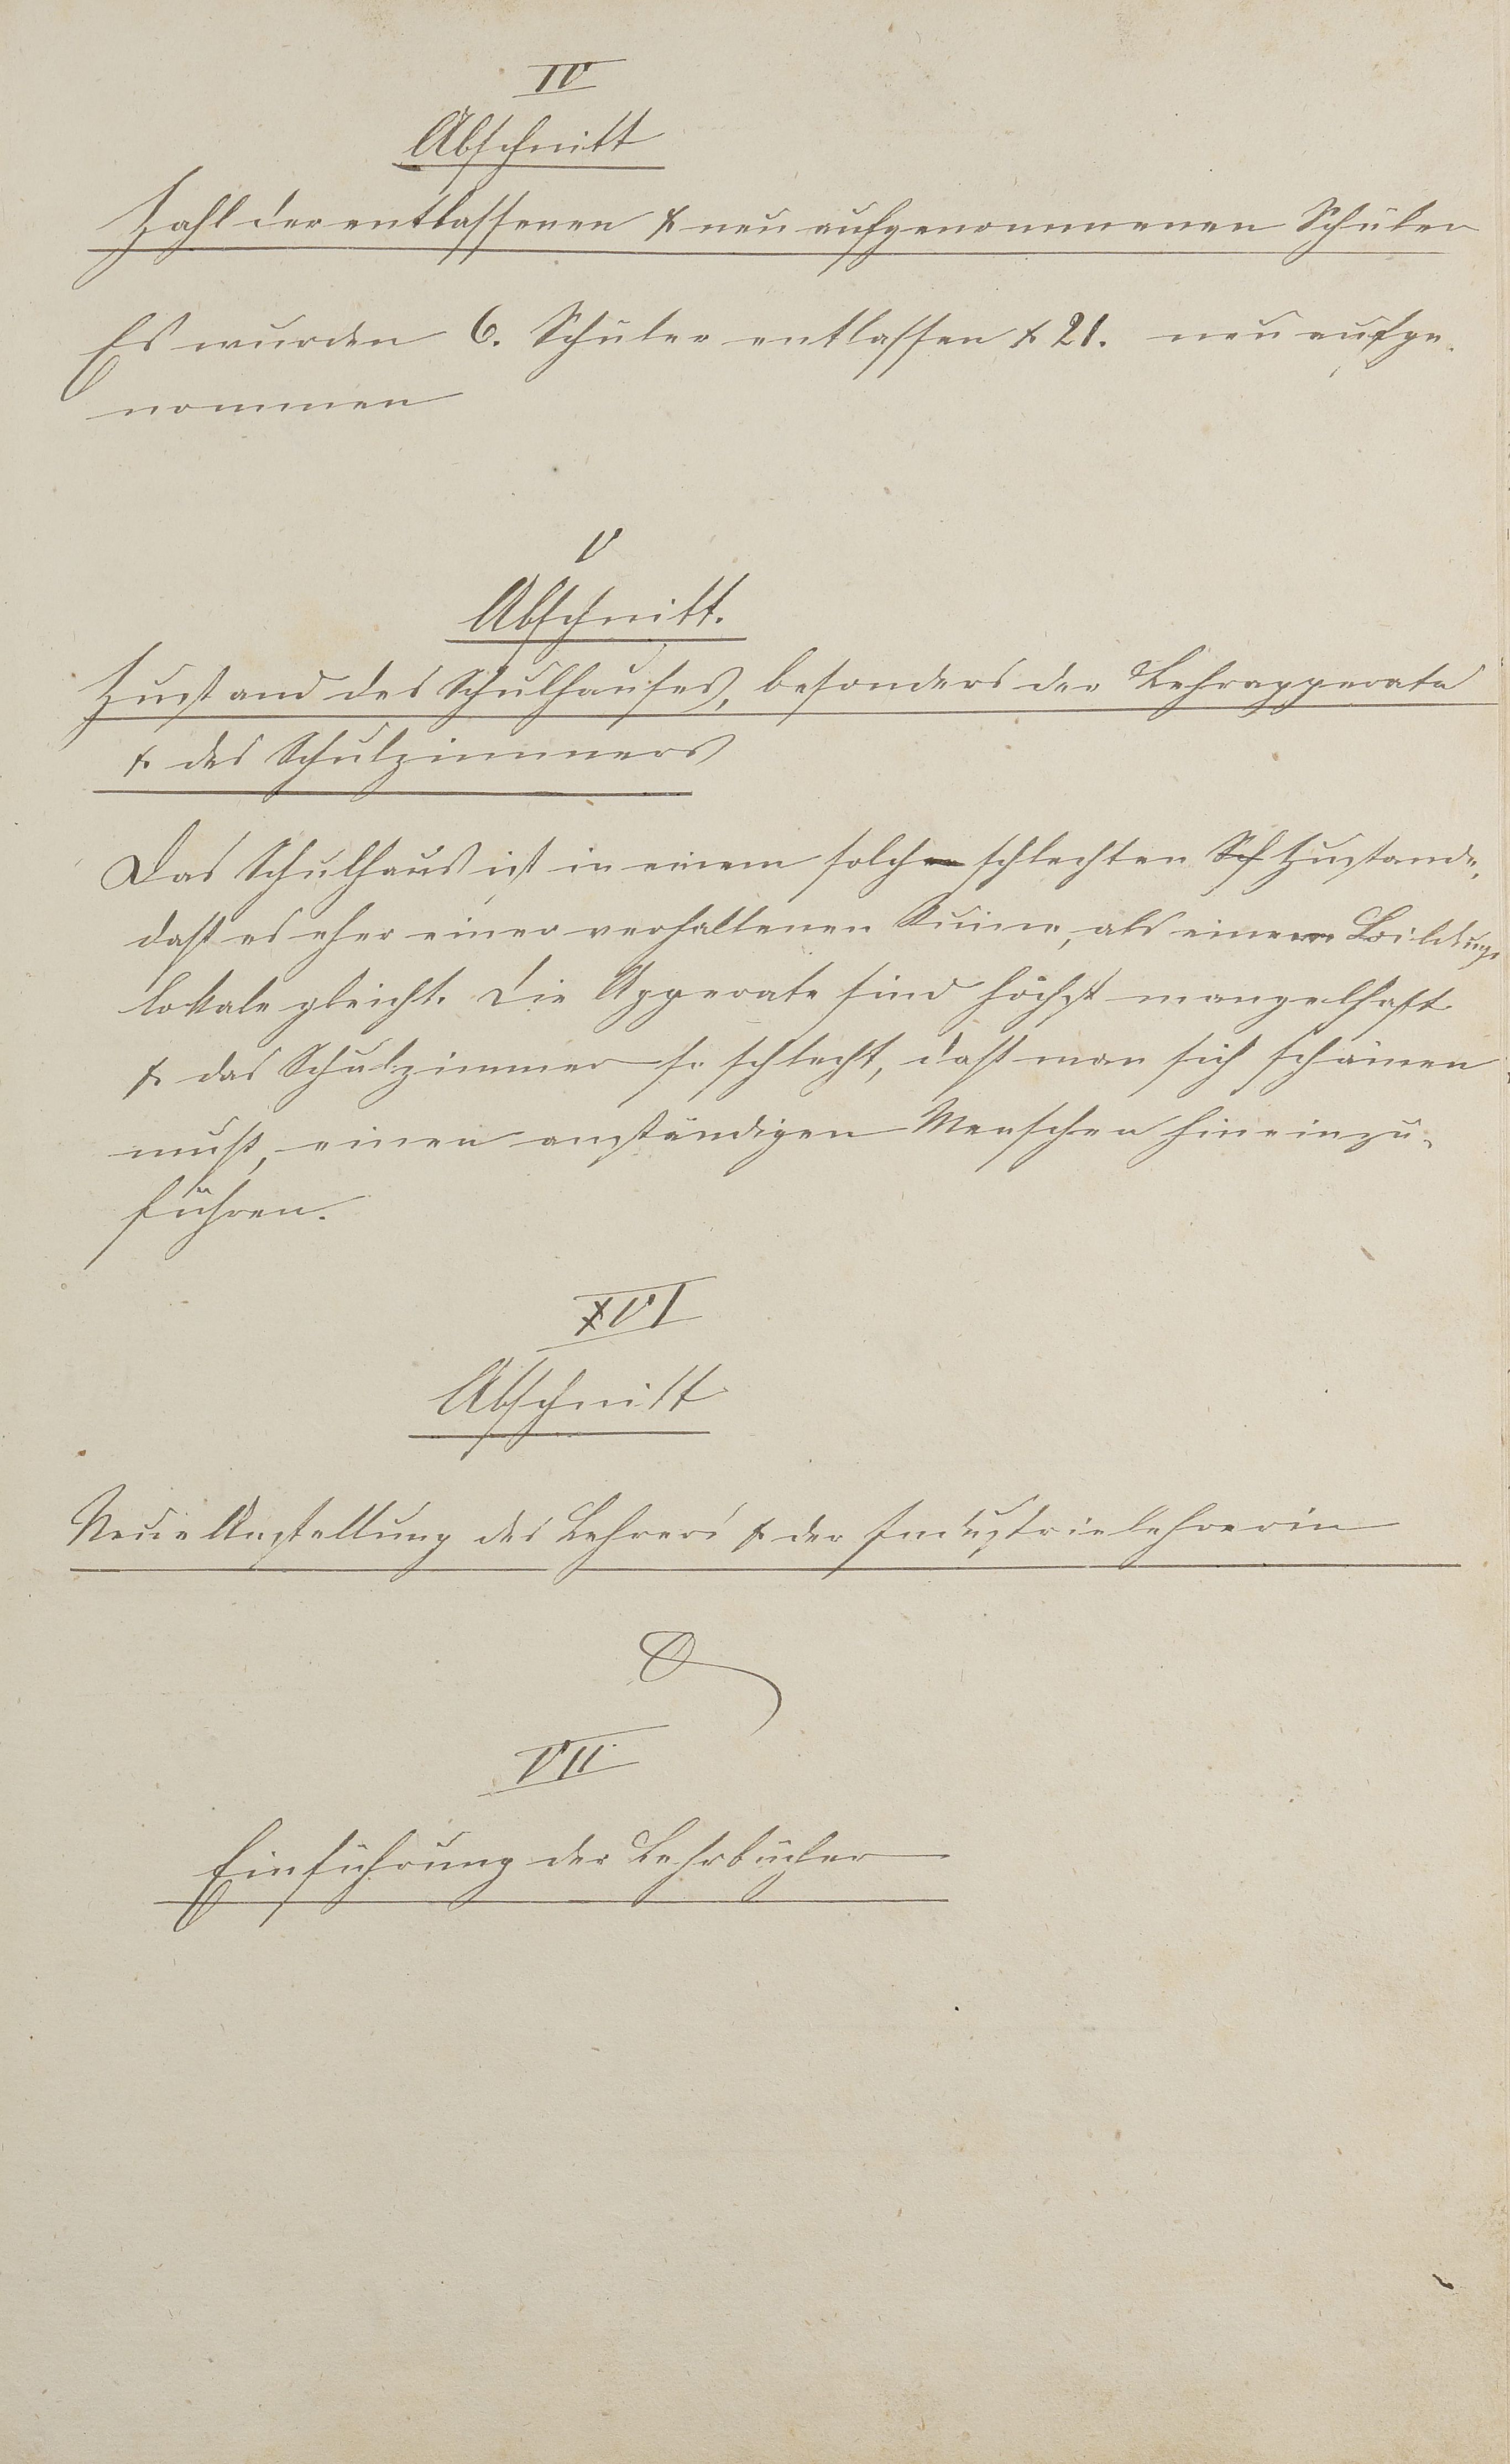 IV
Abschnitt
Zahl der entlassenen & neu aufgenommenen Schüler
Es wurden 6. Schüler entlassen & 21. neu aufge-
nommen
V
Abschnitt.
Zustand des Schulhauses, besonders der Lehrapperate
& des Schulzimmers
Das Schulhaus ist in einem solchen schlechten Sch Zustande,
dass es eher einer verfallenen Ruine, als einem Bildungs
lokale gleicht. Die Apperate sind höchst mangelhaft
& das Schulzimmer so schlecht, dass man sich schämen
muss, einen anständigen Menschen hineinzu-
führen.
XVI
Abschnitt
Neue Anstellung des Lehrers & der Industrielehrerin
O
VII
Einführung der Lehrbücher